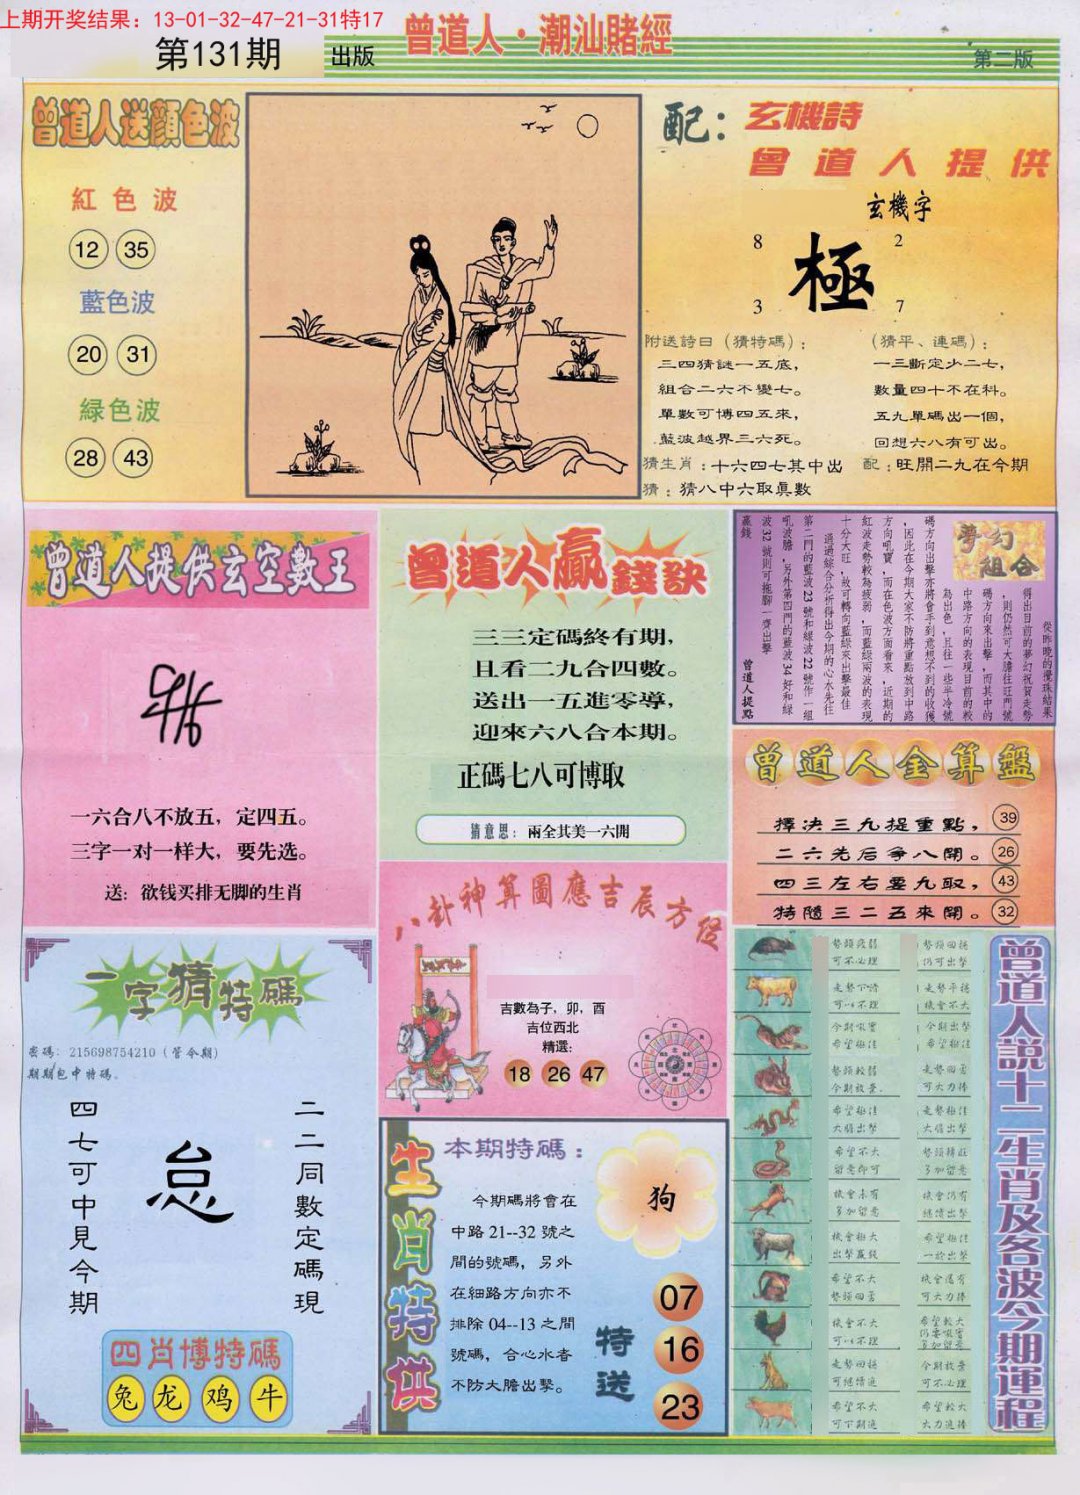 上期开奖结果：13-01-32-47-21-31特17
第131期
出版
曾道人·潮汕賭經
第二版
曾道人送顔色波
紅色波
12 35
藍色波
20 31
緑色波
28 43
配：玄機詩
曾道人提供
玄機字
8 2
極
3 7
附送詩曰（猜特碼）：
三四猜謎一五底，
組合二六不變七。
單數可博四五來，
藍波越界三六死。
（猜平、連碼）：
一三斷定少二七，
數量四十不在科。
五九單碼出一個，
回想六八有可出。
猜生肖：十六四七其中出
配：旺開二九在今期
猜：猜八中六取眞數
曾道人提供玄空數王
一六合八不放五，定四五。
三字一对一样大，要先选。
送：欲钱买排无脚的生肖
曾道人贏錢訣
三三定碼終有期，
且看二九合四數。
送出一五進零導，
迎來六八合本期。
正碼七八可博取
猜意思：兩全其美一六開
夢幻組合
從昨晚的攪珠結果
得出目前的夢幻祝賀走勢
，則仍然可大膽往旺門號
碼方向來出擊，而其中的
中路方向的表現目前的較
為出色，且往一些半冷號
碼方向出擊亦將會手到意想不到的收獲
，因此在今期大家不防將重點放到中路
方向吼寶，而在色波方面看來，近期的
紅波走勢較為疲弱，而藍綠兩波的表現
十分大旺，故可轉向藍綠來出擊最佳
通過綜合分析得出今期的心水先往
第二門的藍波23號和綠波22號作一組
吼波膽，另外第四門的藍波34好和綠
波32號則可拖腳一齊出擊
贏錢
曾道人提點
曾道人金算盤
擇決三九提重點，39
二六先后争八開。26
四三左右要九取，43
特隨三二五來開。32
八卦神算圖應吉辰方位
吉數為子，卯，酉
吉位西北
精選：
18 26 47
一字猜特碼
密碼：215698754210（管令期）
期期包中特碼。
四七可中見今期
怠
二二同數定碼現
四肖博特碼
兔 龙 鸡 牛
生肖特供
本期特碼：
今期碼將會在
中路21--32號之
間的號碼，另外
在細路方向亦不
排除04--13之間
號碼，合心水者
不防大膽出擊。
狗
特送
07
16
23
曾道人說十二生肖及各波今期運程
勢頭疲弱
可不必理
勢頭回揚
仍可出擊
走勢下調
可以不理
走勢平穩
機會不大
今期吼寶
希望極佳
今期出擊
希望極佳
勢頭較弱
今期放棄
走勢回勇
可大力捧
希望極佳
大膽出擊
走勢極佳
大膽出擊
希望不大
留意即可
勢頭轉旺
多加留意
機會未有
多加留意
機會仍有
繼續出擊
機會極大
出擊贏錢
希望極佳
一於出擊
希望不大
勢頭回勇
機會還有
可大力捧
機會不大
可以不理
希望較大
仍要吼實
多加留意
走勢回揚
可繼續追
今期放棄
可不必理
希望不大
可下期追
希望較大
大力追捧